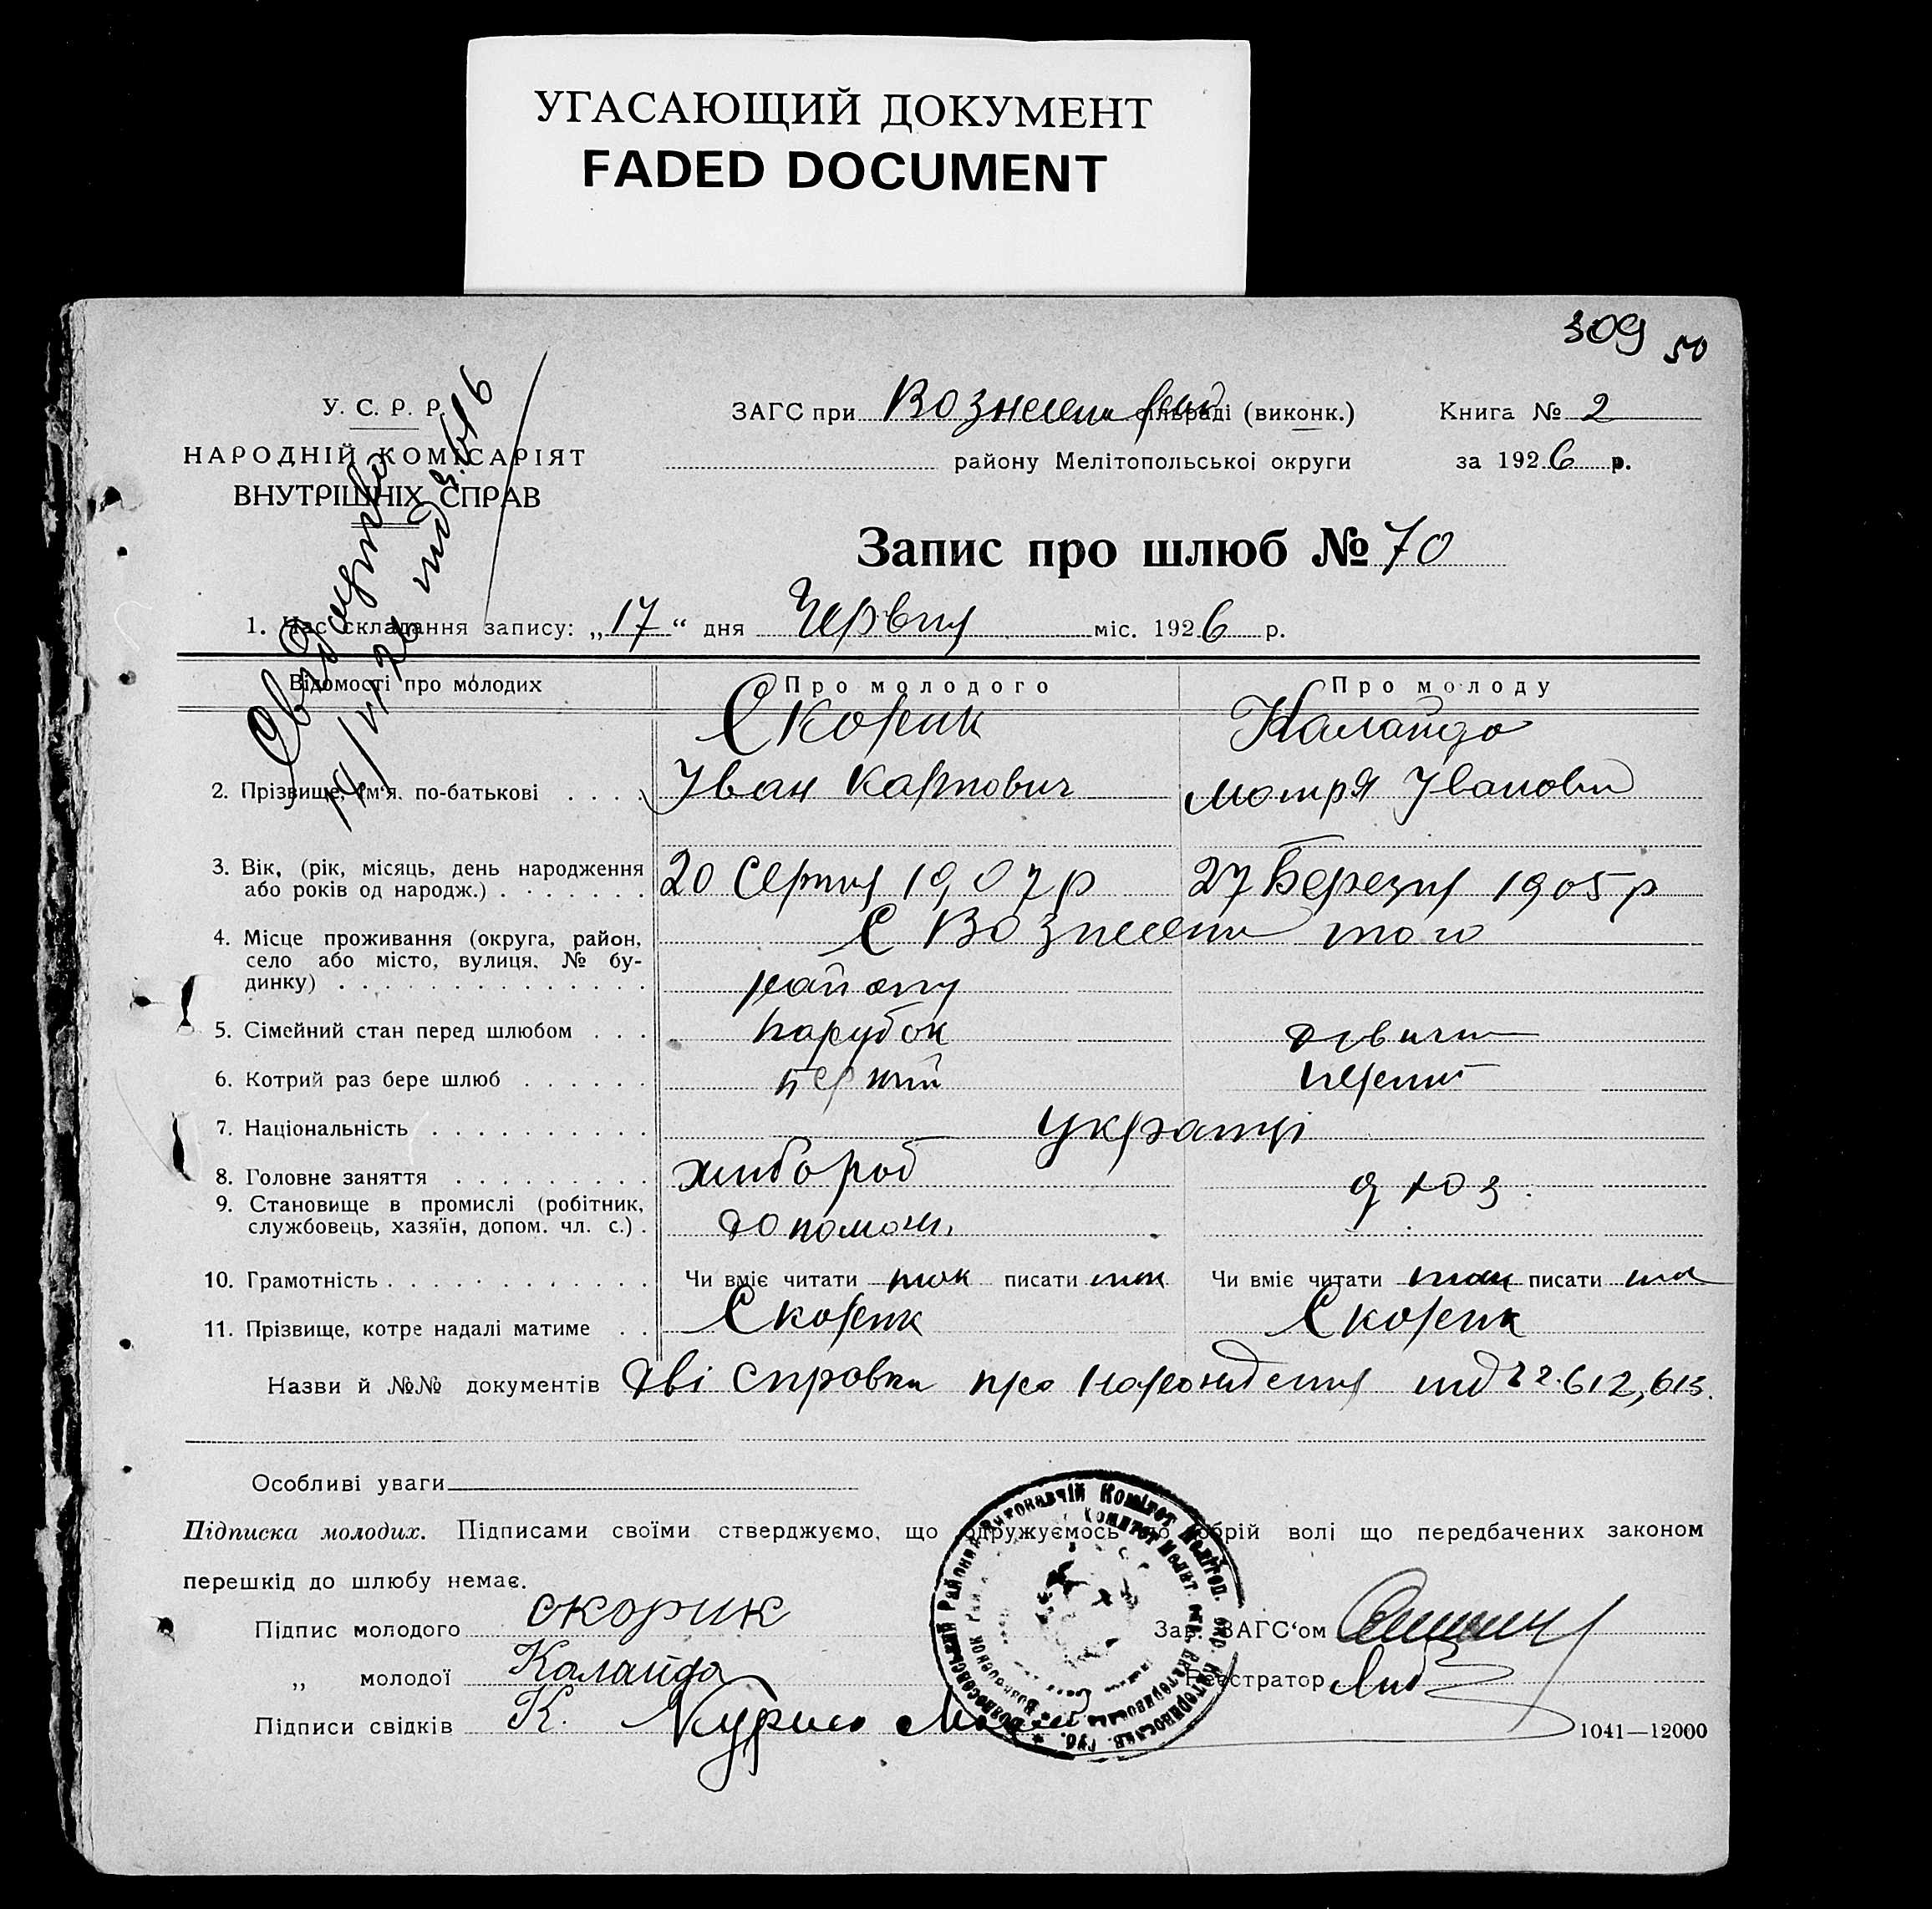 УГАСАЮЩИЙ ДОКУМЕНТ
FADED DOCUMENT
309 50
У. С. Р. Р.
НАРОДНІЙ КОМІСАРІЯТ
ВНУТРІШНІХ СПРАВ
ЗАГС при Вознесен рик сільраді (виконк.) Книга № 2
району Мелітопольської округи за 1926 р.
Запис про шлюб № 70
1. Час складання запису: „17“ дня Червня міс. 1926 р.
Відомості про молодих Про молодого Про молоду
Скорик Калайда
2. Прізвище, ім'я, по-батькові . . . . Іван Карпович мотря Івановн
3. Вік, (рік, місяць, день народження
або років од народж.) . . . . . . . 20 Серпня 1907 р 27 Березня 1905 р
4. Місце проживання (округа, район, С Вознесенк того
село або місто, вулиця, № бу-
динку) . . . . . . . . . . . . . . району
5. Сімейний стан перед шлюбом . . . парубок дівчин
6. Котрий раз бере шлюб . . . . . . перший перший
7. Національність . . . . . . . . . . українці
8. Головне заняття . . . . . . . . . хлібороб
9. Становище в промислі (робітник,
службовець, хазяїн, допом. чл. с.) . допомож.
10. Грамотність . . . . . . . . . . . . Чи вміє читати так писати так Чи вміє читати так писати так
11. Прізвище, котре надалі матиме . . Скорик Скорик
Назви й №№ документів дві справки про народження під 22.612,613.
Особливі уваги
Підписка молодих. Підписами своїми стверджуємо, що одружуємось по добрій волі що передбачених законом
перешкід до шлюбу немає.
Підпис молодого скорик Зав. ЗАГС'ом
„ молодої Калайда Реєстратор
Підписи свідків К. Курило
1041—12000